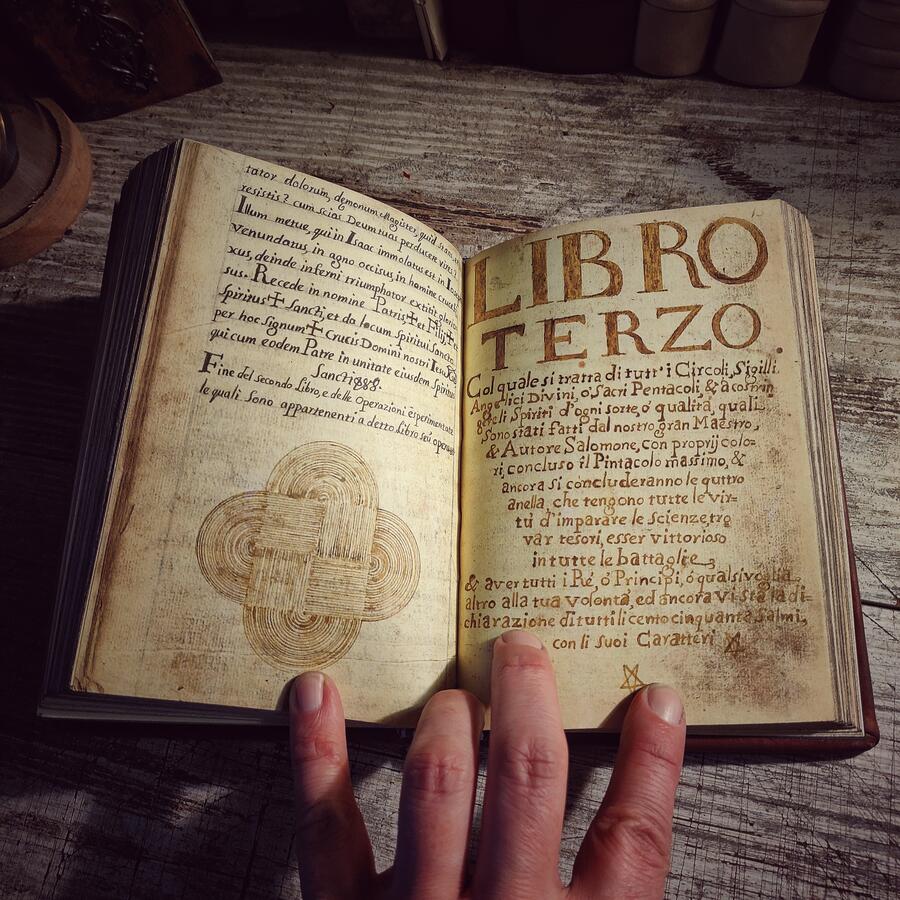 tator dolorum, demonum Magister, quid
resistis? cum scias Deum tuas perducere vires?
Illum metue, qui in Isaac immolatus est in
venundatus, in agno occisus, in homine
xus, deinde inferni triumphator extitit
sus. Recede in nomine Patris ✠ et Filij ✠ et
spiritus ✠ Sancti, et da locum Spiritui Sancto
per hoc signum ✠ Crucis Domini nostri
qui cum eodem Patre in unitate eiusdem Spiritus
Sancti
Fine del secondo Libro, e delle Operazioni esperimentate
le quali sono appartenenti a detto Libro seu
LIBRO
TERZO
Col quale si tratta di tutt' i Circoli, Sigilli
Angelici Divini, o' Sacri Pentacoli, &
Spiriti d'ogni sorte, o' qualità, quali
sono stati fatti dal nostro gran Maestro,
& Autore Salomone, con proprij colo=
ri, concluso il Pintacolo massimo, &
ancora si concluderanno le quttro
anella, che tengono tutte le vir=
tù d'imparare le scienze, tro
var tesori, esser vittorioso
in tutte le battaglie
& aver tutti i Rè, o' Principi, o' qualsivoglia
altro alla tua volontà, ed ancora vi sta la di=
chiarazione di tutti li cento cinquanta Salmi,
con li suoi Caratteri